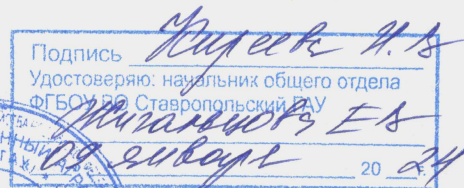 Подпись Киреева Н.В
Удостоверяю: начальник общего отдела
ФГБОУ ВО Ставропольский ГАУ
Жигальцова Е В
09 января 20 24 г.